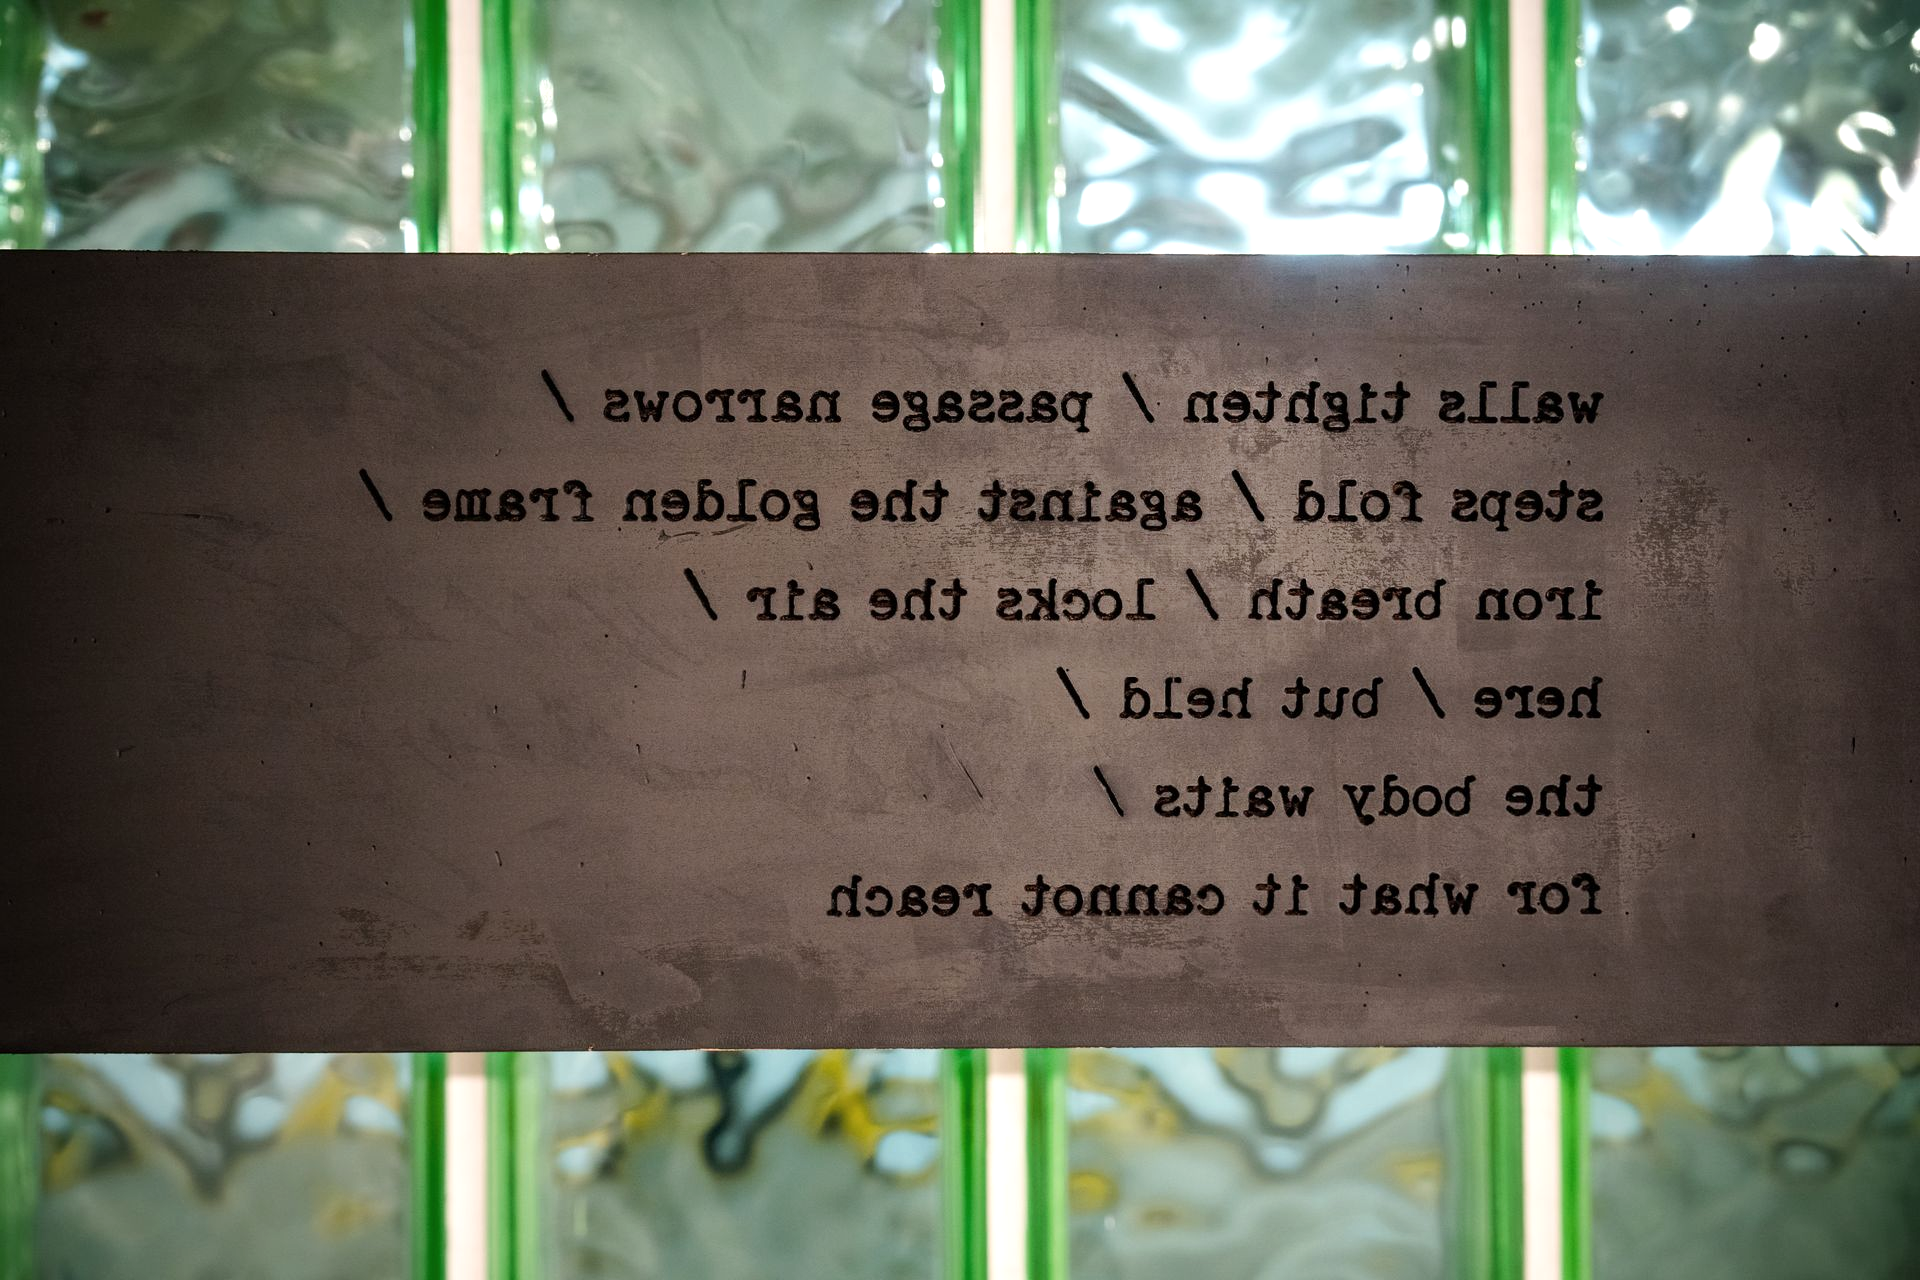 walls tighten / passage narrows /
steps fold / against the golden frame /
iron breath / locks the air /
here / but held /
the body waits /
for what it cannot reach